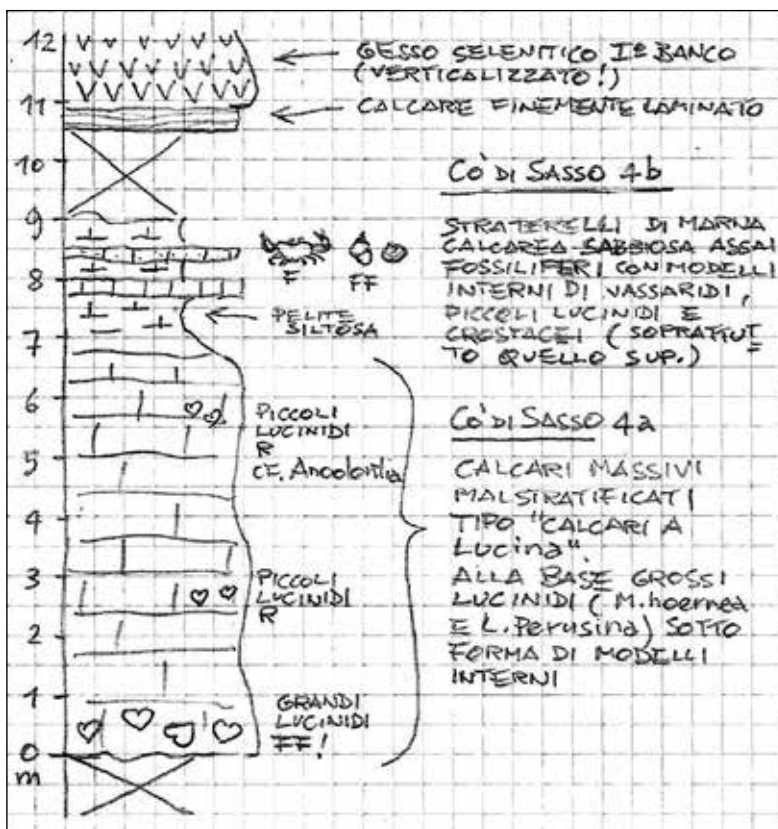 12
GESSO SELENITICO I° BANCO
(VERTICALIZZATO!)
11
CALCARE FINEMENTE LAMINATO
10
CO' DI SASSO 4b
9
STRATERELLI DI MARNA
CALCAREA SABBIOSA ASSAI
FOSSILIFERI CON MODELLI
INTERNI DI NASSARIDI,
PICCOLI LUCINIDI E
CROSTACEI (SOPRATTUT
TO QUELLO SUP.)
F
FF
8
PELITE
SILTOSA
7
6
PICCOLI
LUCINIDI
R
CF. Anodontia
5
CO' DI SASSO 4a
CALCARI MASSIVI
MALSTRATIFICATI
TIPO "CALCARI A
Lucina".
ALLA BASE GROSSI
LUCINIDI (M. hoernea
E L. Perusina) SOTTO
FORMA DI MODELLI
INTERNI
4
3
PICCOLI
LUCINIDI
R
2
1
GRANDI
LUCINIDI
FF!
0
m